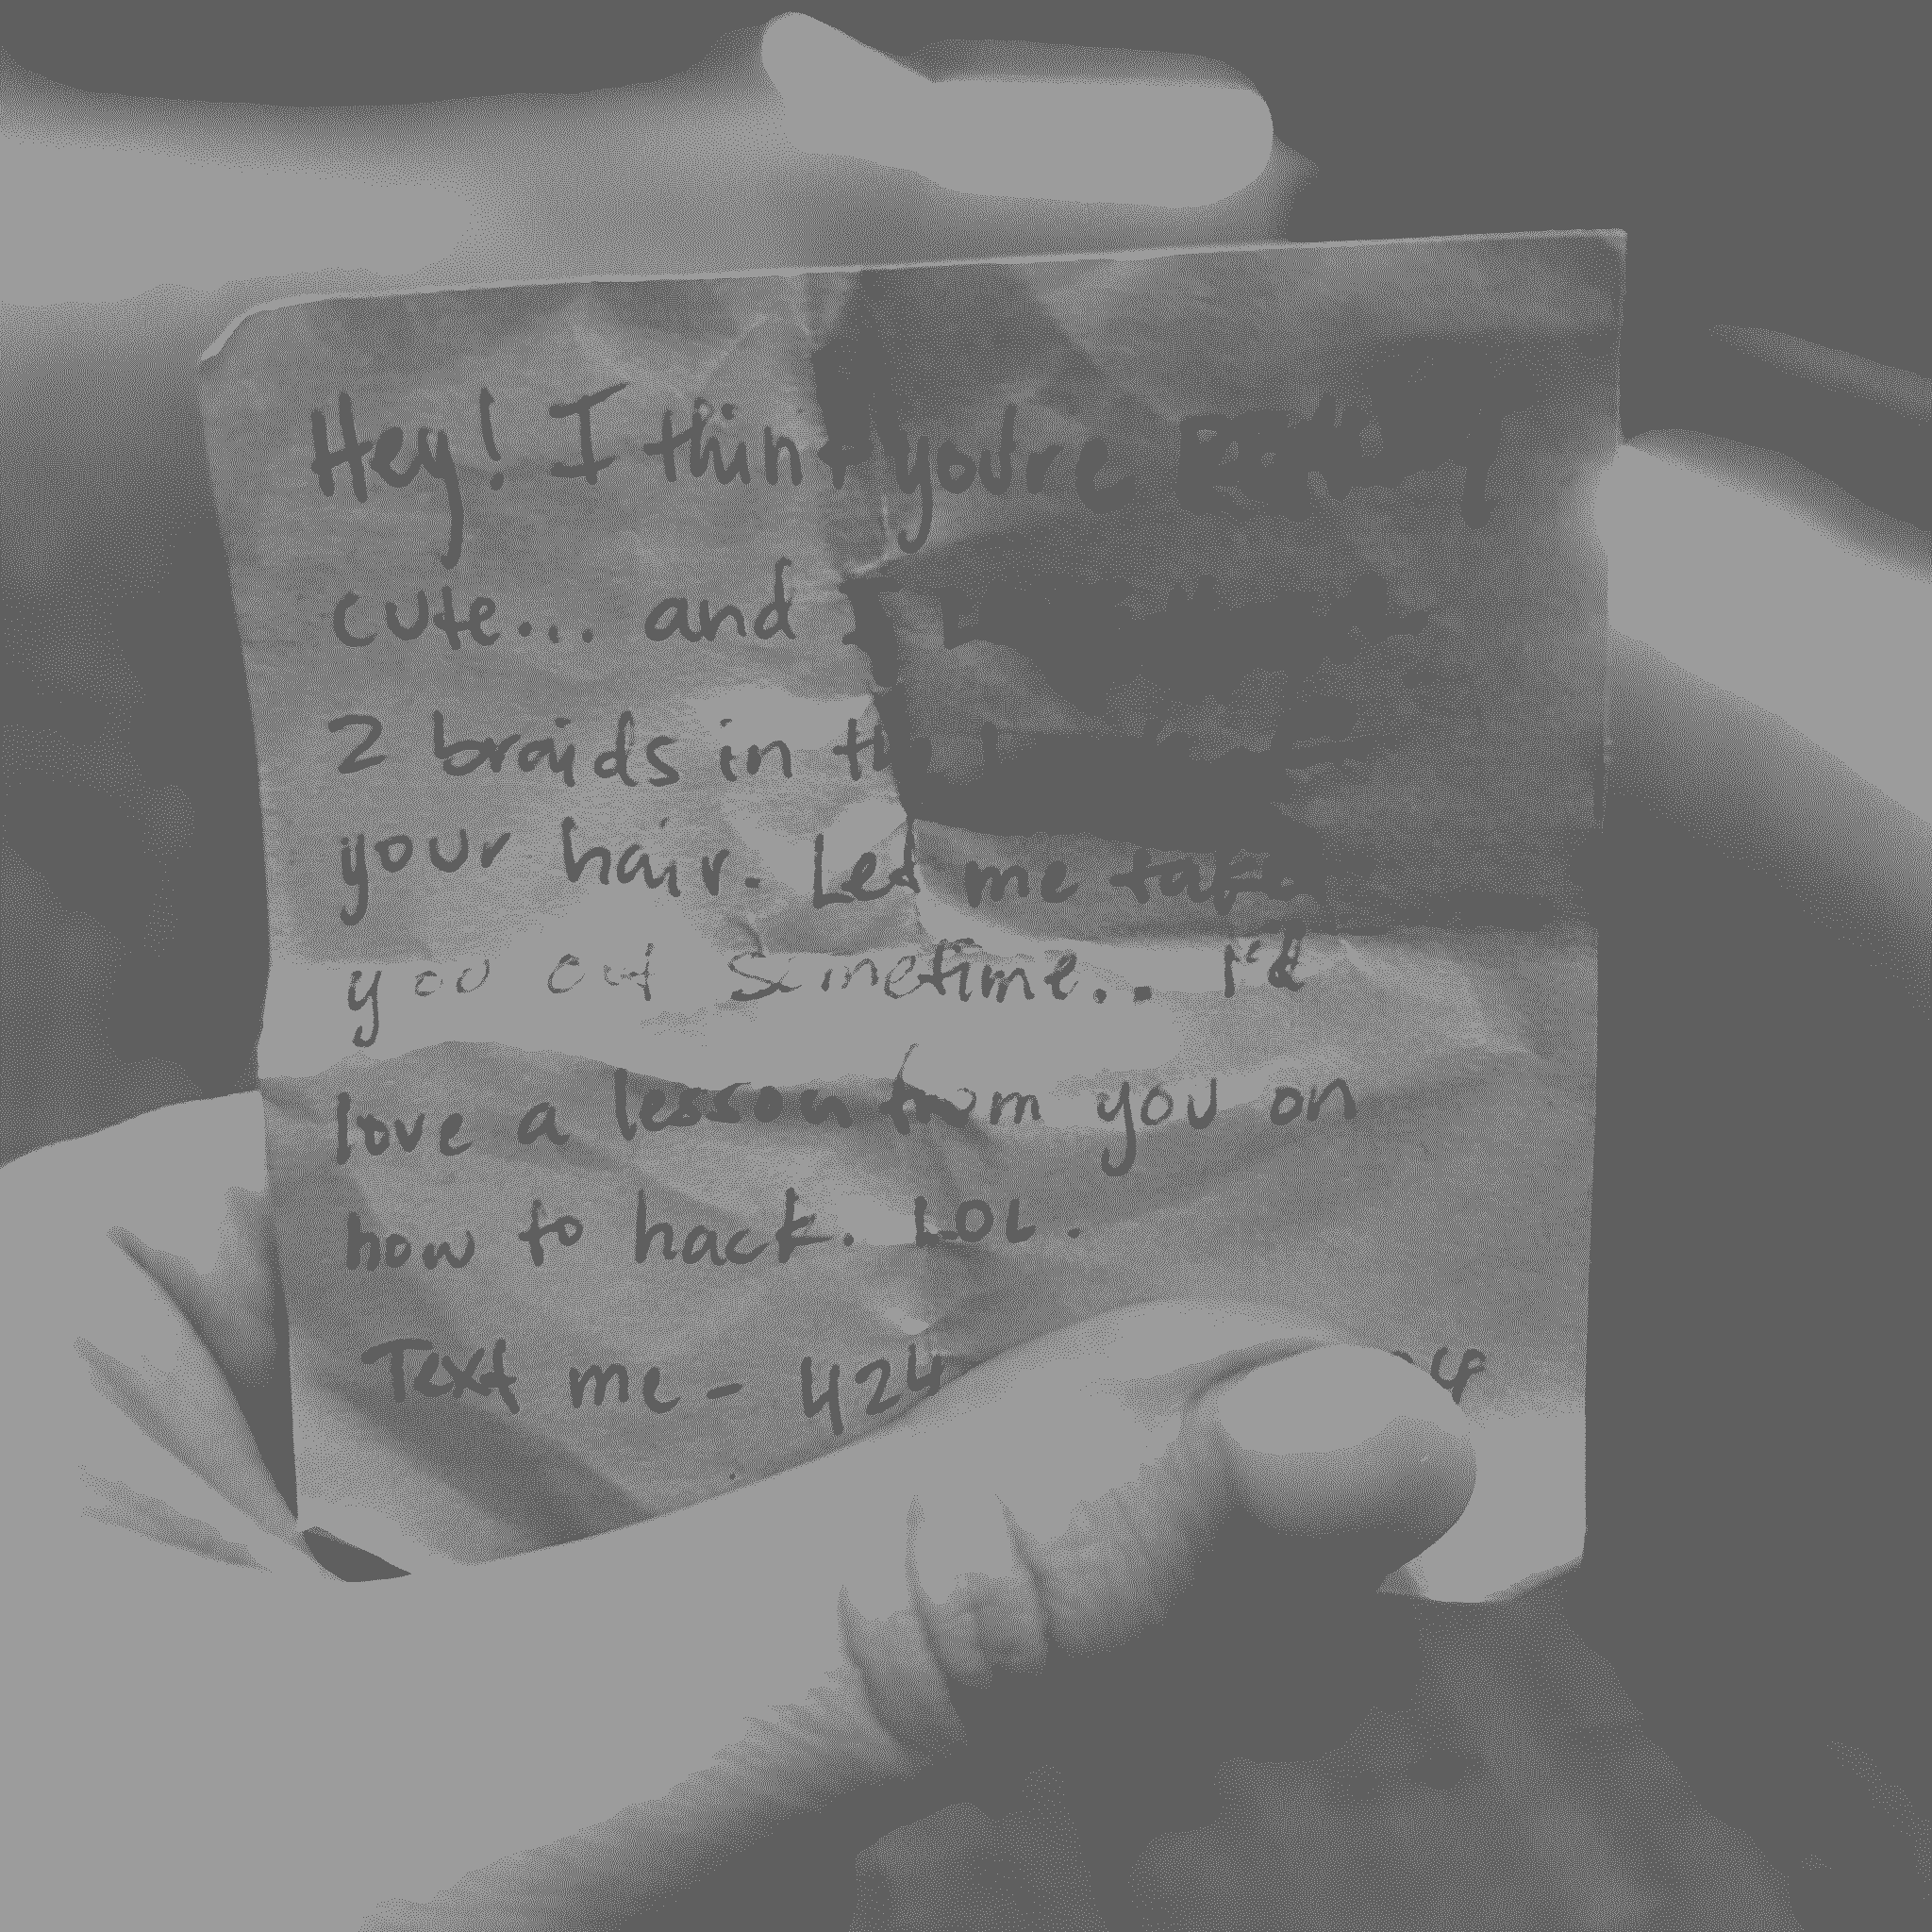 Hey! I think you're
cute... and
2 braids in the
your hair. Let me take
you out sometime.. I'd
love a lesson from you on
how to hack. LOL.
Text me - 424